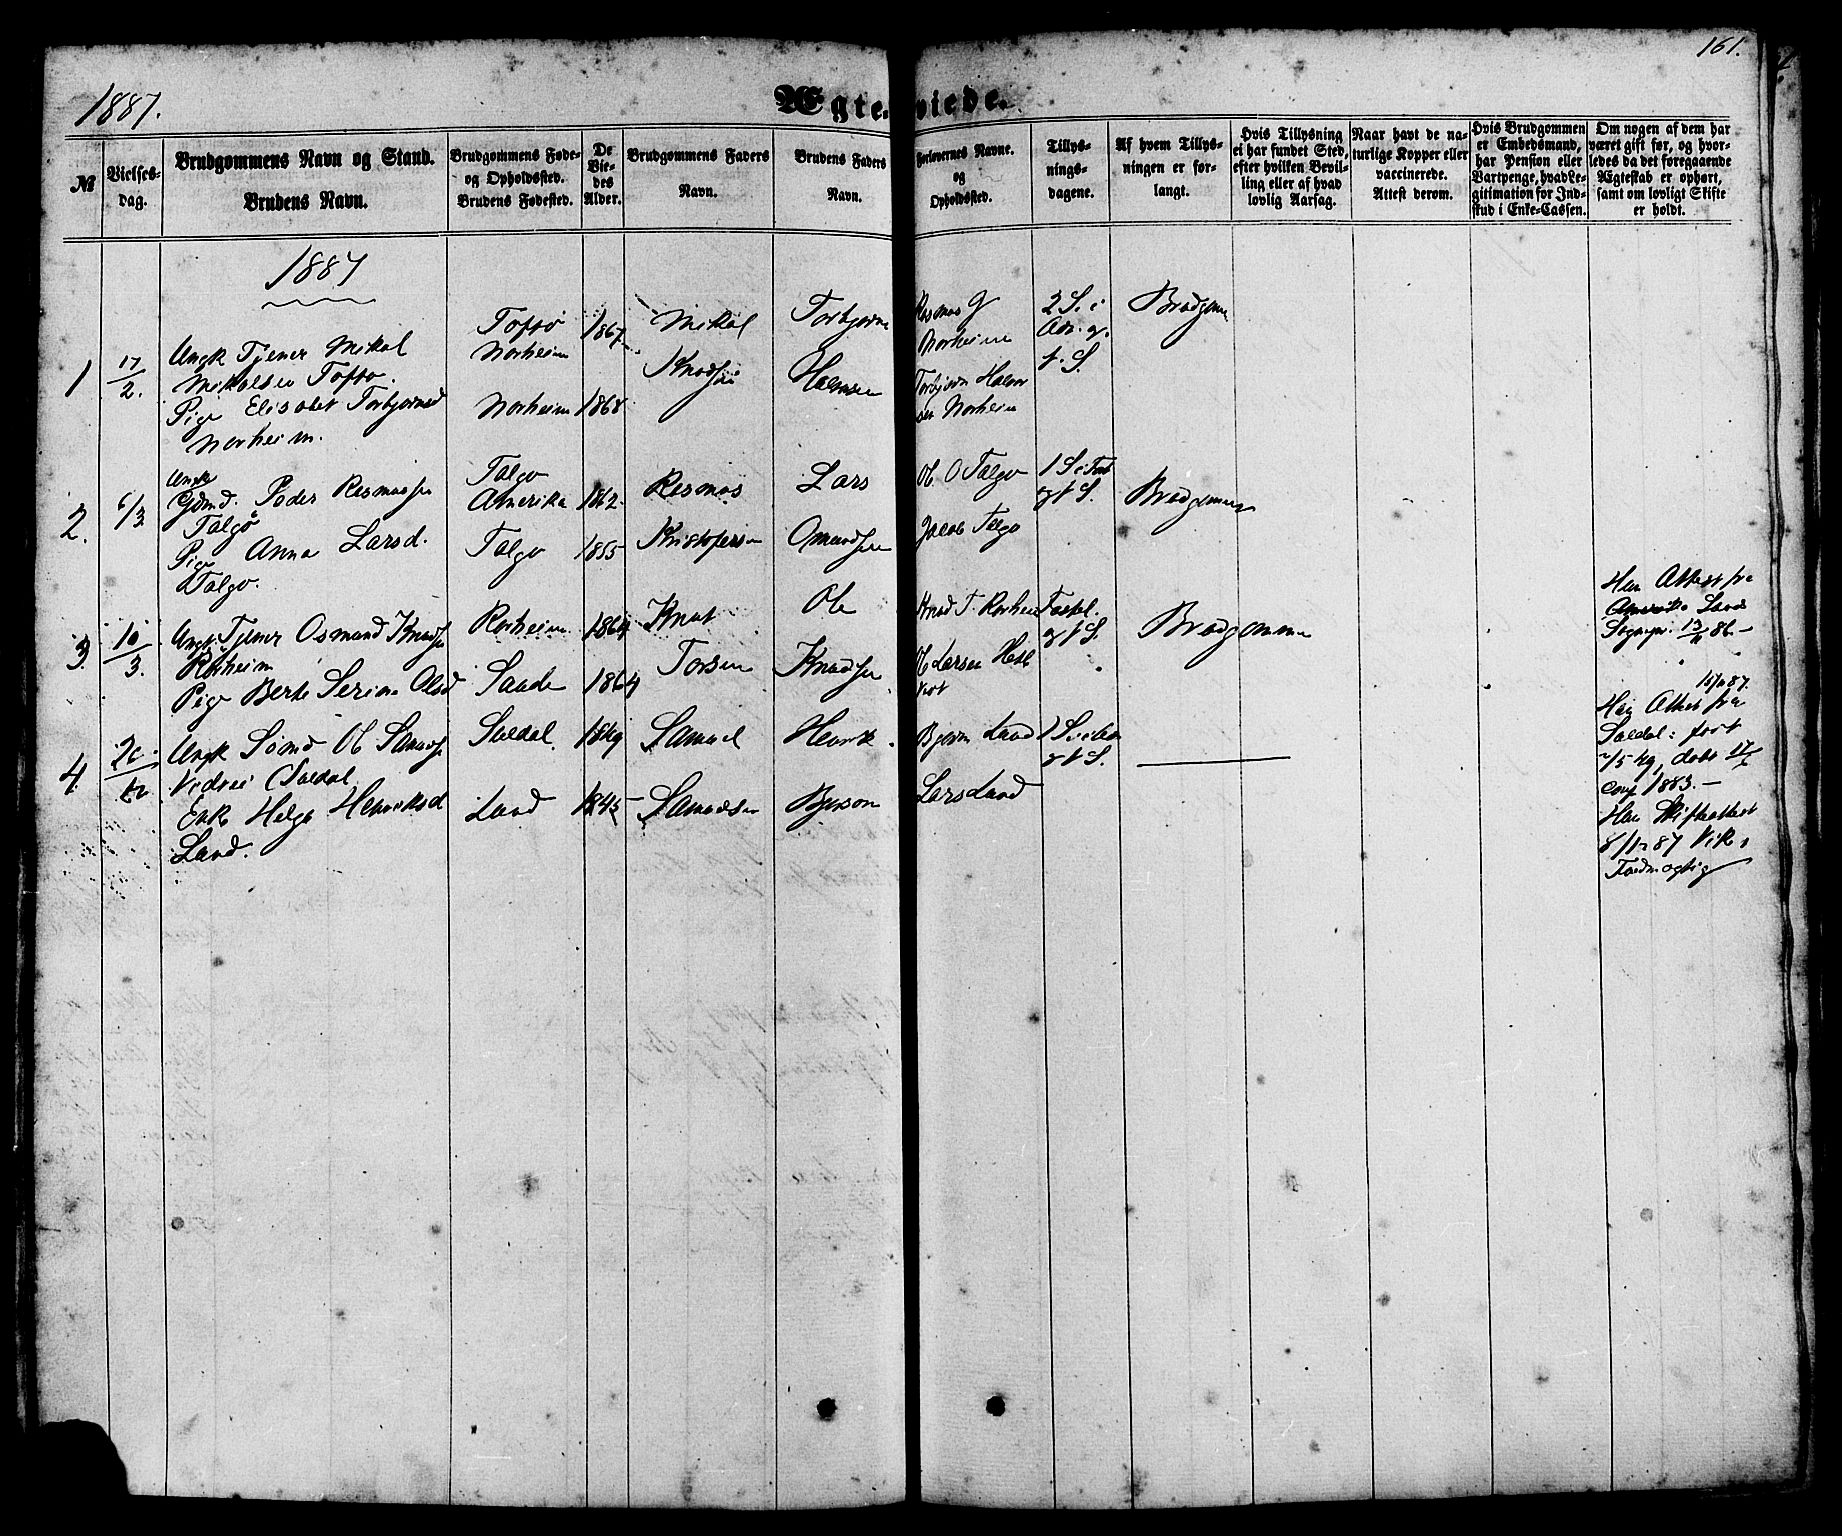 161.
1887.
Ægteviede.
№
Vielses-
dag.
Brudgommens Navn og Stand.
Brudens Navn.
Brudgommens Føde-
og Opholdssted.
Brudens Fødested.
De
Vie-
des
Alder.
Brudgommens Faders
Navn.
Brudens Faders
Navn.
Forlovernes Navne.
og
Opholdssted.
Tillys-
nings-
dagene.
Af hvem Tillys-
ningen er for-
langt.
Hvis Tillysning
ei har fundet Sted,
efter hvilken Bevil-
ling eller af hvad
lovlig Aarsag.
Naar havt de na-
turlige Kopper eller
vaccinerede.
Attest derom.
Hvis Brudgommen
er Embedsmand,
har Pension eller
Vartpenge, hvad Le-
gitimation for Ind-
skud i Enke-Cassen.
Om nogen af dem har
været gift før, og hvor-
ledes da det foregaaende
Ægteskab er ophørt,
samt om lovligt Skifte
er holdt.
1887
1
17/2.
Ungk Tjener Mikal
Mikalsen Toftø.
Pige Elisabet Torbjørnsd
Norheim.
Toftø
Norheim
Norheim
1867
1868
Mikal
Knudsen
Torbjørn
Halvorsen
Rasmus G
Norheim
Torbjørn Halvor
sen Norheim
2 S. i
Adv. og
f. S.
Brudgom
2.
6/3
Ungk
Gdmd. Peder Rasmussen
Talgø
Pige Anna Larsd.
Talgø.
Talgø
Amerika
Talgø
1862
1855
Rasmus
Kristofersen
Lars
Omundsen
Ole O Talgø
Jacob Talgø
1 S. i Fast
og f S.
Brudgommen
3.
10/3.
Ungk Tjener Osmund Knudsen
Rørheim
Pige Berte Serine Olsd
Rørheim
Saade
1864
1864
Knut
Torsen
Ole
Knudsen
Knud T. Rørheim
Ole Larsen
Fastel.
og f S.
Brudgommen
Har Attest fra
Sogepr. 13/2 86
4.
Ungk Sømd Ole Samuels
(Suldal
Enke Helga Henriksd
Land.
Suldal
Land
1849
1845
Samuel
Samuelsen
Henrik
Bjørson
Bjørn Land
Lars Land
og f S.
15/12 87.
Har Attest fra
Suldal: født
døbt
conf 1883.
Har Skifteattest
8/12 87 Vik,
Fuldmægtig